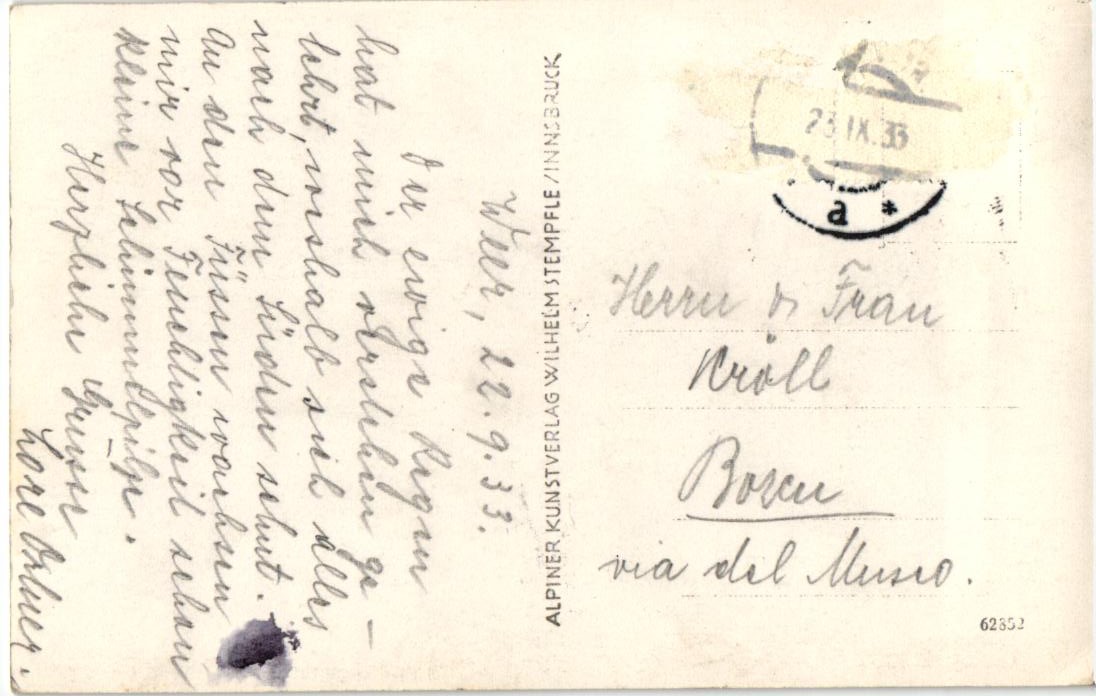 Weer, 22.9.33.
Der ewige Regen
hat mich verstehen ge-
lehrt, weshalb sich alles
nach dem Süden sehnt.
An den Füssen wachsen
mir vor Feuchtigkeit schon
kleine Schimmelpilze.
Herzliche Grüsse
Lore
ALPINER KUNSTVERLAG WILHELM STEMPFLE / INNSBRUCK
23 IX. 33
a *
Herrn & Frau
Kröll
Bozen
via del Museo.
62852